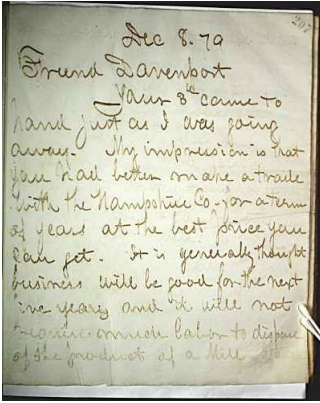 207
Dec 8. 79
Friend Davenport
Your 8th came to
hand just as I was going
away. My impression is that
you had better make a trade
with the Hampshire Co. for a term
of years at the best price you
can get. It is generally thought
business will be good for the next
five years and it will not
require much labor to dispose
of the product of a Mill